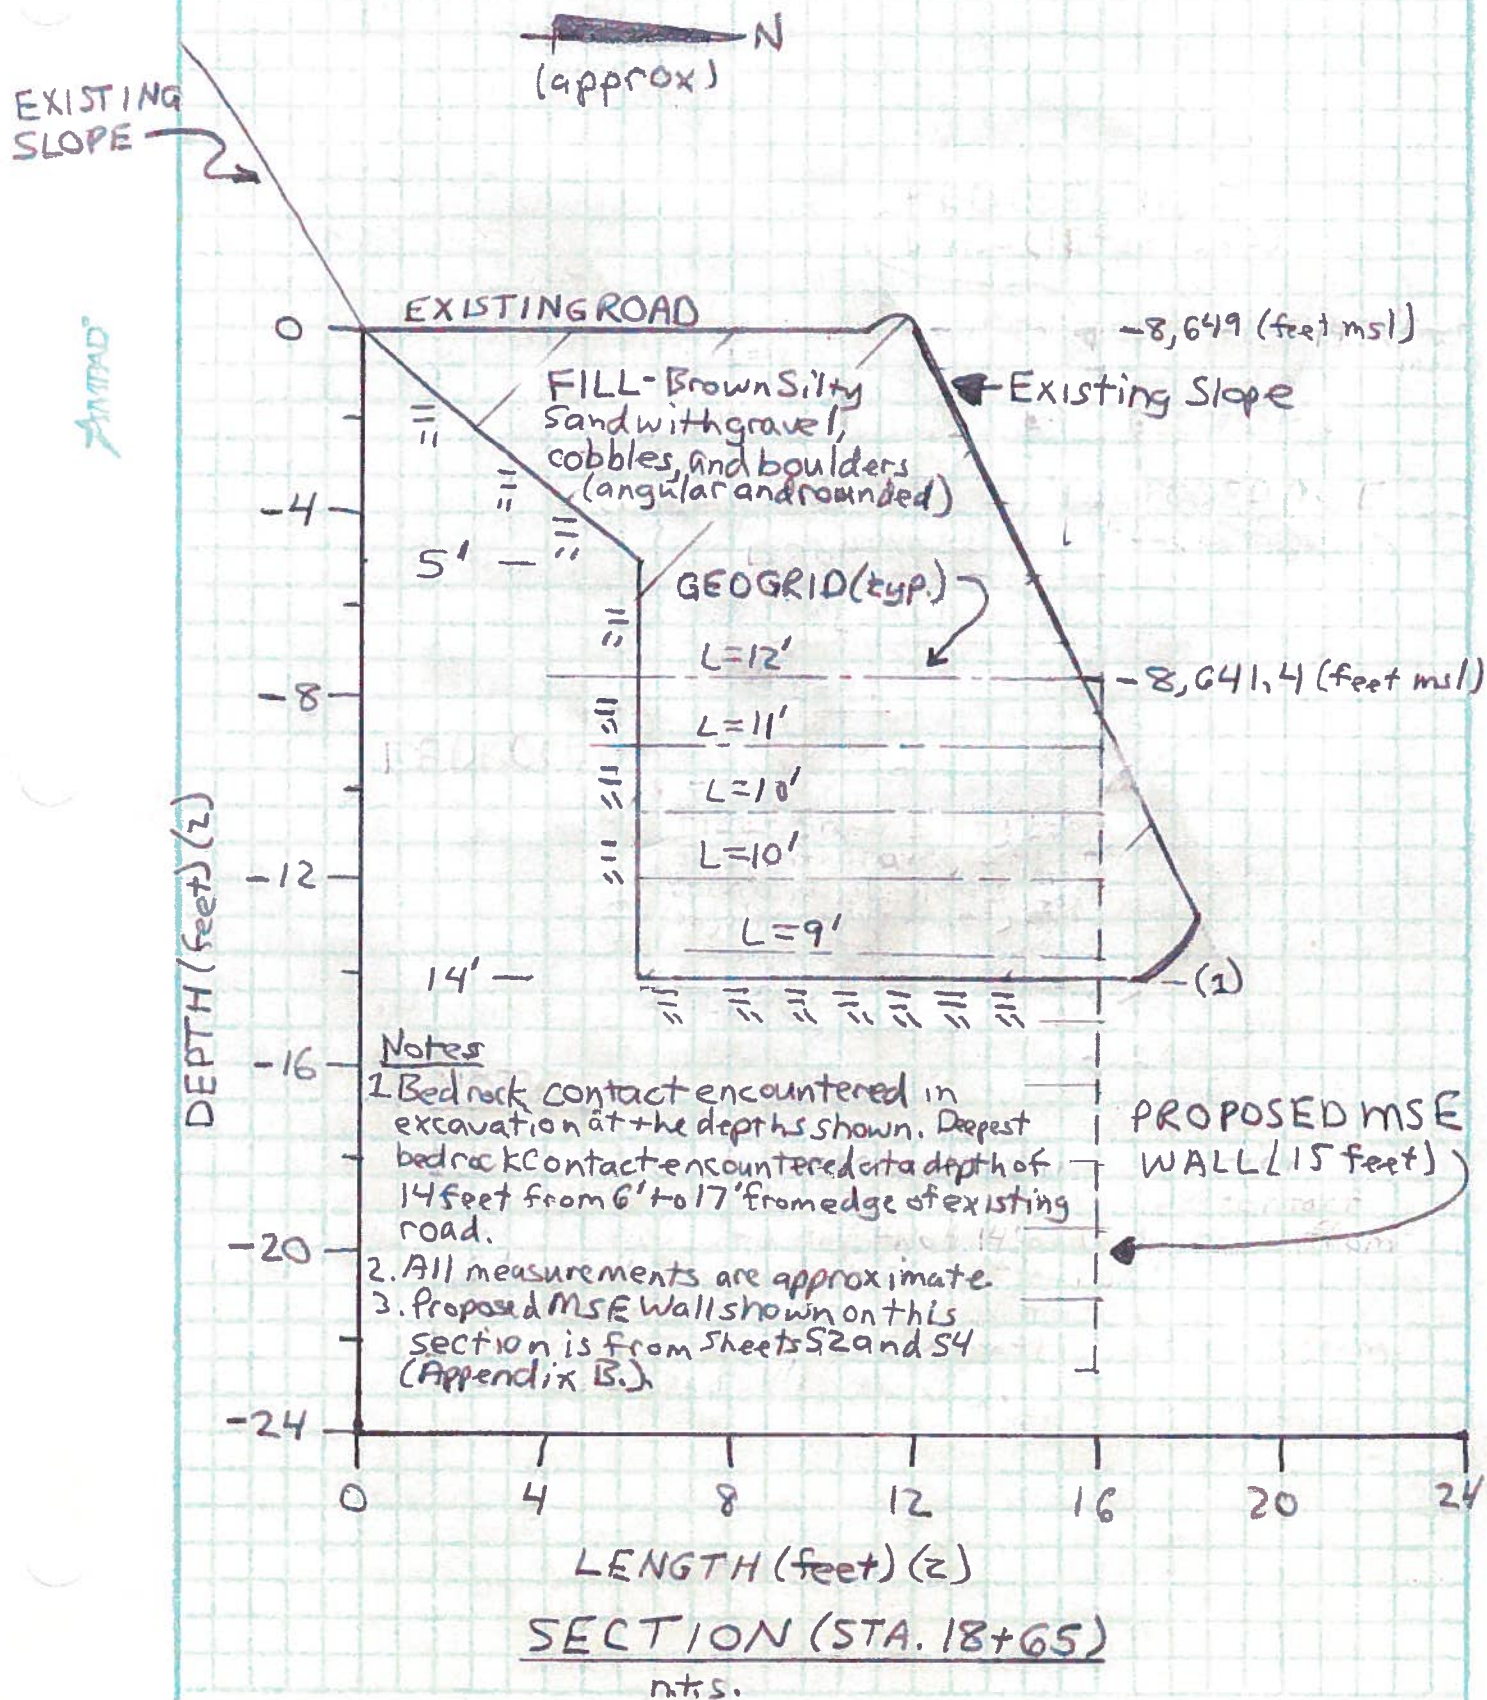 N
(approx)
EXISTING
SLOPE
AMPAD
EXISTING ROAD
0
-8,649 (feet msl)
FILL-Brown Silty
Sand with gravel,
cobbles, and boulders
(angular and rounded)
Existing Slope
-4
5'
GEOGRID (typ.)
L=12'
-8,641.4 (feet msl)
-8
L=11'
L=10'
L=10'
-12
L=9'
14'
(1)
DEPTH (feet) (2)
Notes
-16
1 Bedrock contact encountered in
excavation at the depths shown. Deepest
bedrock contact encountered at a depth of
14 feet from 6' to 17' from edge of existing
road.
PROPOSED MSE
WALL (15 feet)
-20
2. All measurements are approximate.
3. Proposed MSE Wall shown on this
section is from Sheets S2 and S4
(Appendix B.).
-24
0 4 8 12 16 20 24
LENGTH (feet) (2)
SECTION (STA. 18+65)
n.t.s.